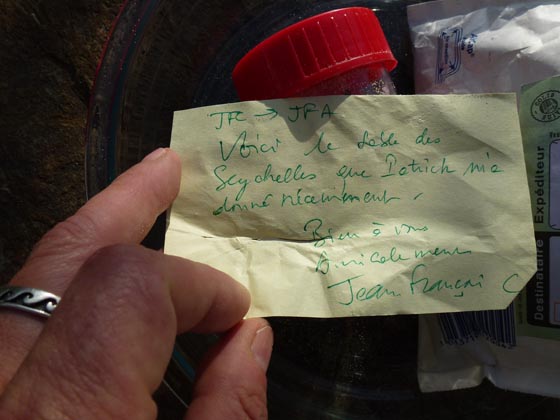 JFC → JFA
Voici le sable des
Seychelles que Patrick m'a
donné récemment.
Bien à vous
Amicalement
Jean François C
Expéditeur
Destinataire